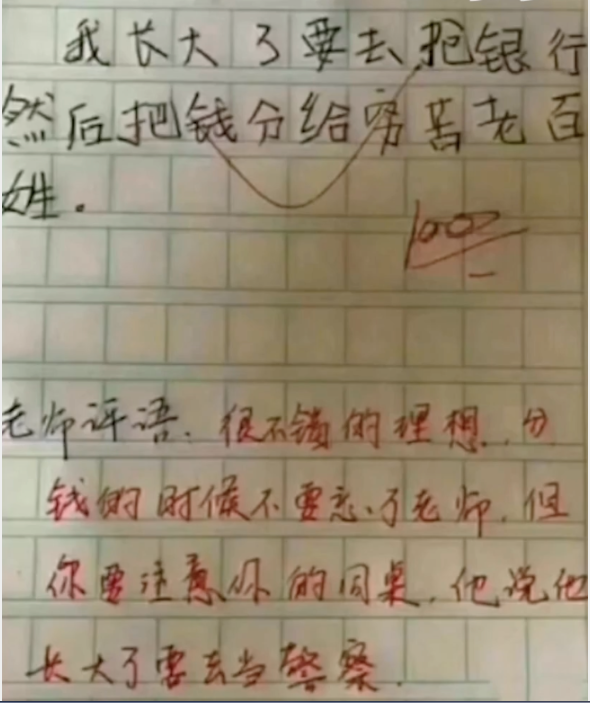 我长大了要去抢银行
然后把钱分给穷苦老百
姓。
100
老师评语：很不错的理想，分
钱的时候不要忘了老师，但
你要注意你的同桌，他说他
长大了要去当警察.